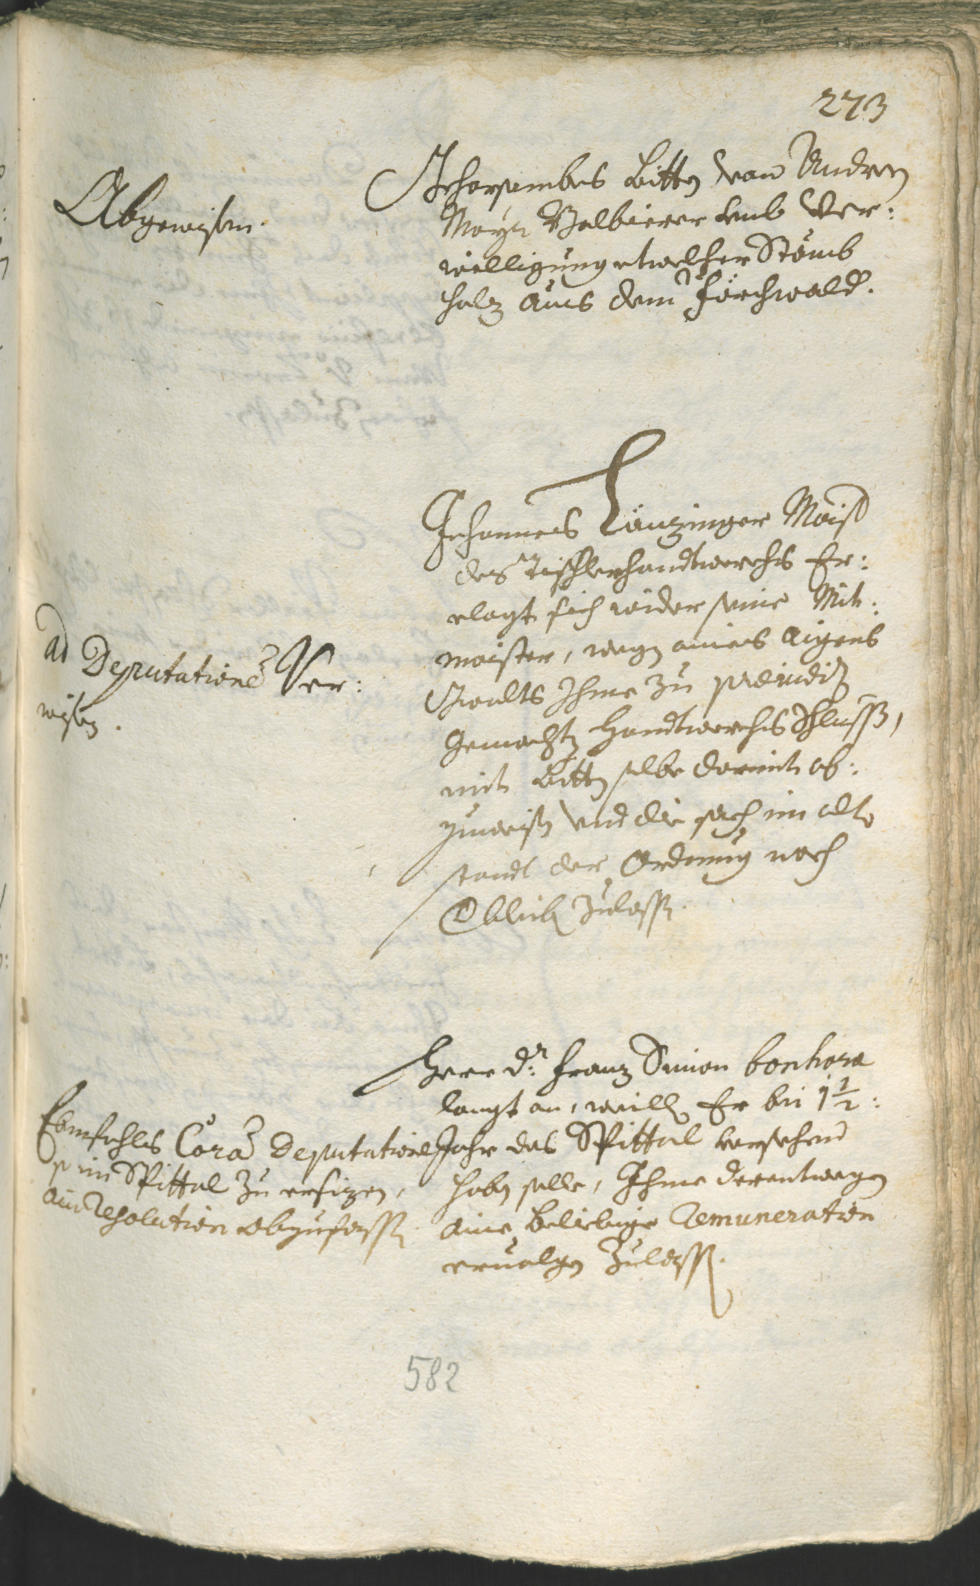 273
Abgewisen.
Gehorsambes Bitten von Andreen
Mayr Balbierer umb Ver:
willigung etwelcher Stämb
holz aus dem Förchwald.
Johannes Länzinger Maister
des Tischlerhandtwerchs Er:
clagt sich wider seine Mit:
maister, wegen aines aigens
gwalts Ihme zu praeiudiz
gemachten Handtwerchs Schlusß,
mit Bitten selbe darmit ab:
zuweisen und die sach im alten
standt der Ordnung nach
zulassen.
ad Deputationem Ver:
wisen.
Herr Dr: Franz Simon bonhora
langt an, weillen Er bei 1 1/2:
Jahr das Spittal versehen
haben solle, Ihme derentwegen
aine beliebige Remuneration
ervolgen zulassen.
Coram Deputatione
im Spittal zu
ain Resolution abzufassen
582